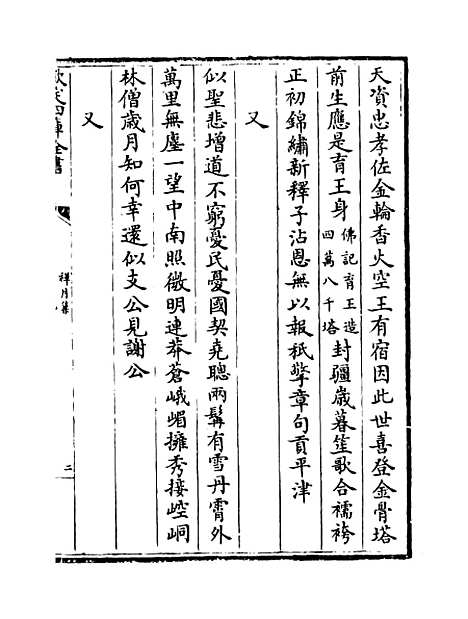 天資忠孝佐金輪香火空王有宿因此世喜登金骨塔
前生應是育王身佛記育王造四萬八千塔封疆歲暮笙歌合襦袴
正初錦繡新釋子沾恩無以報秖擎章句貢平津
又
似聖悲增道不窮憂民憂國契堯聰兩鬂有雪丹霄外
萬里無塵一望中南照微明連莽蒼峨嵋擁秀接崆峒
林僧歲月知何幸還似支公見謝公
又
欽定四庫全書
禪月集
二